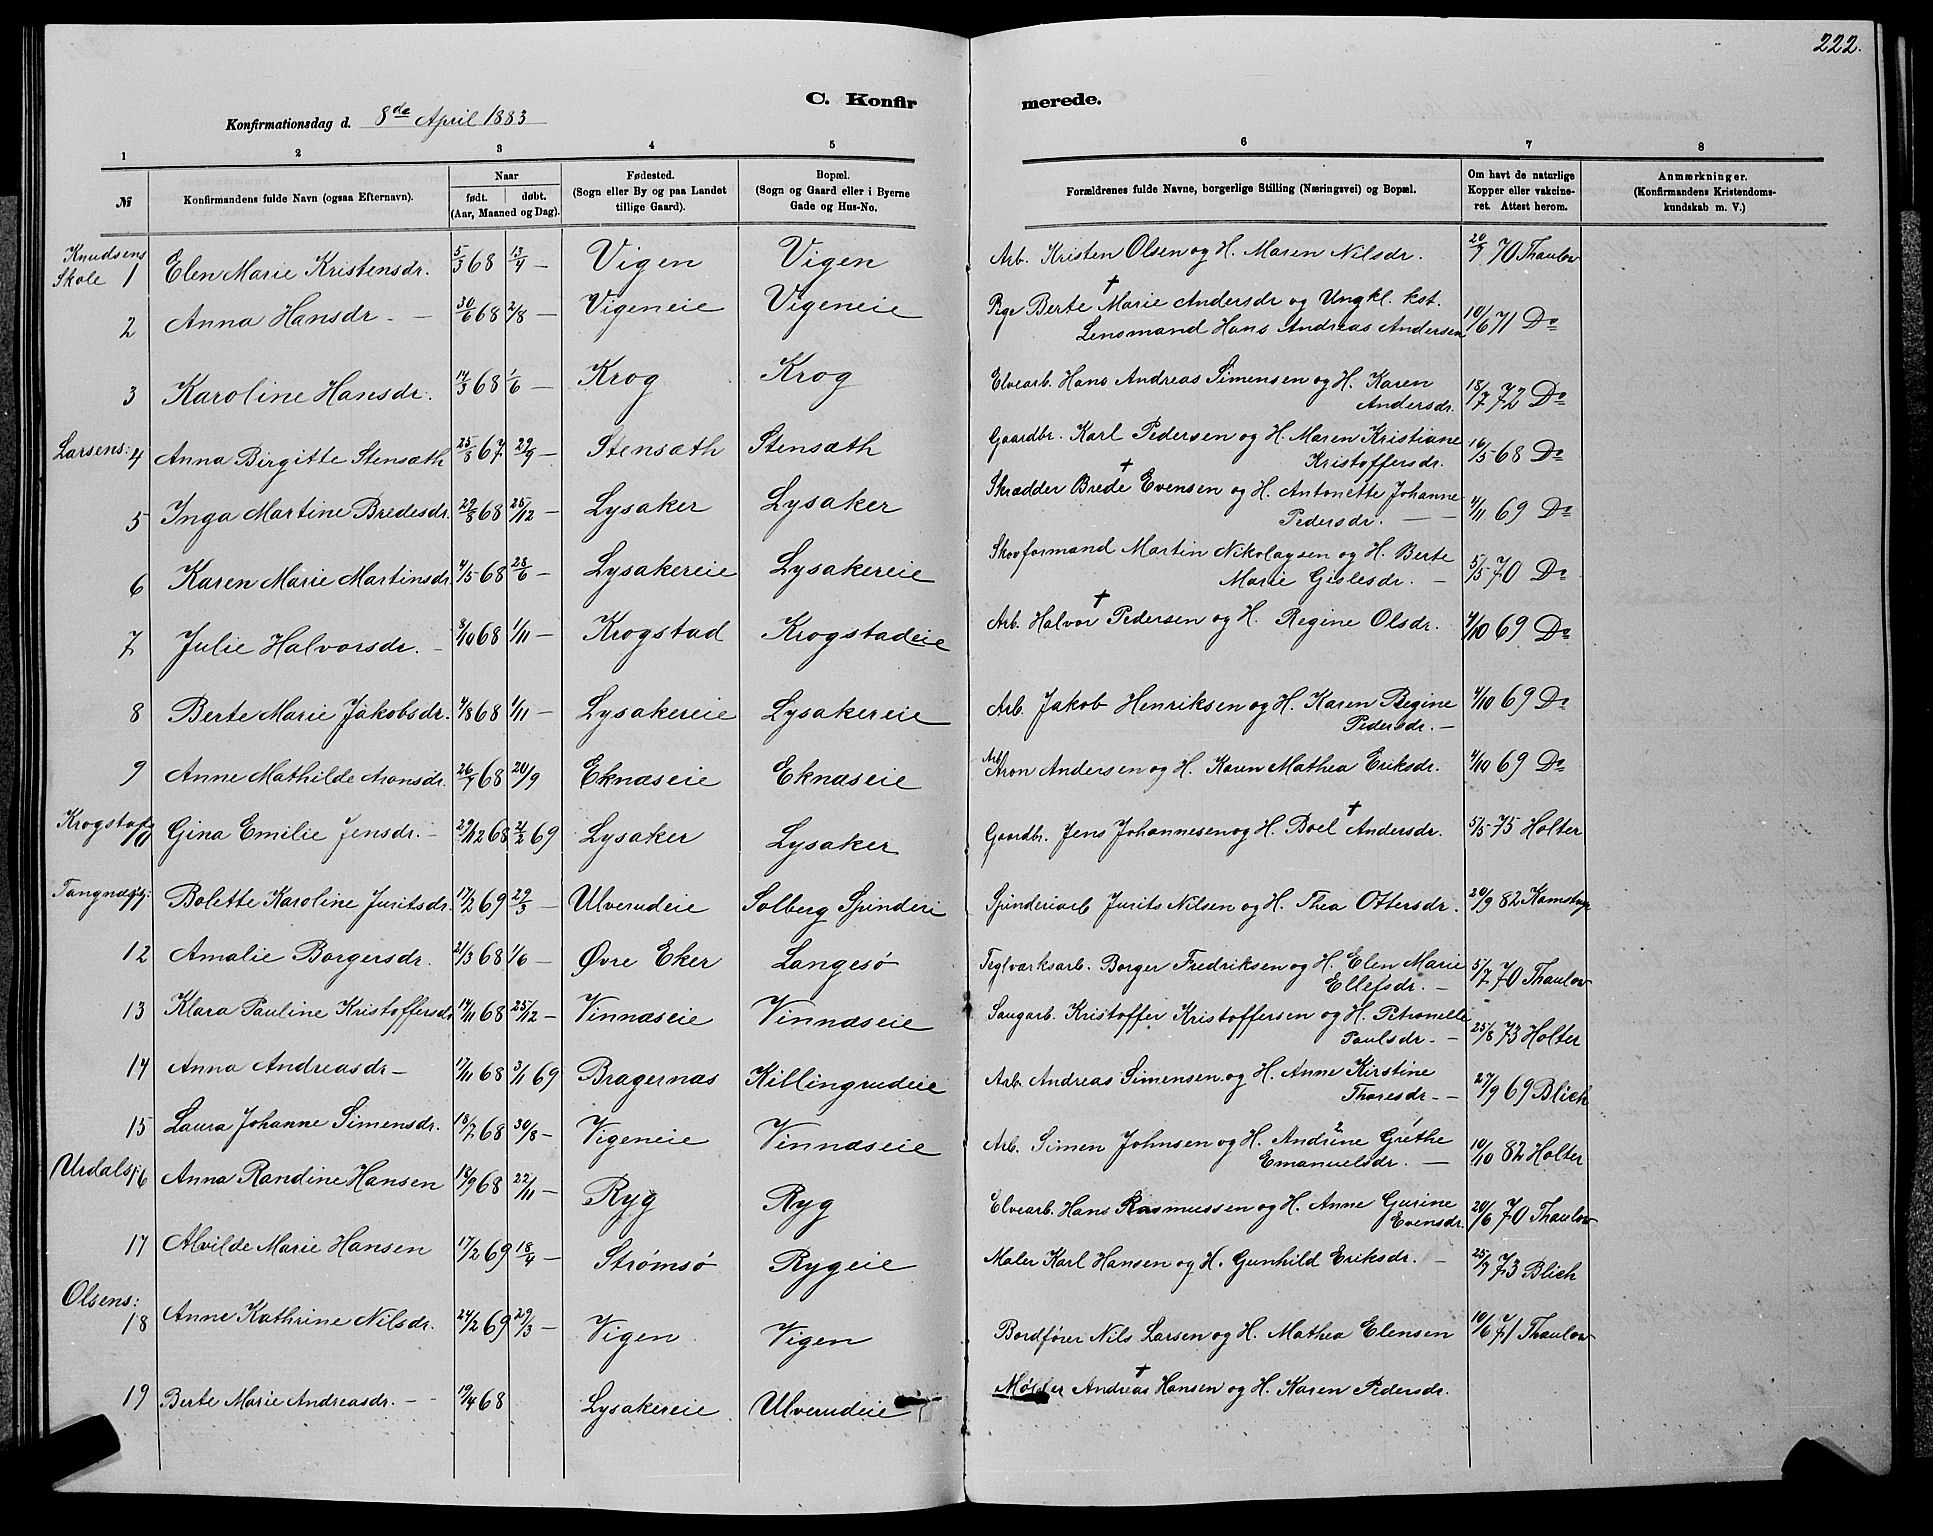 222.
C. Konfir merede.
Konfirmationsdag d. 8de April 1883
1 2 3 4 5 6 7 8
№ Konfirmandens fulde Navn (ogsaa Efternavn). Naar født. døbt. (Aar, Maaned og Dag). Fødested. (Sogn eller By og paa Landet tillige Gaard). Bopæl. (Sogn og Gaard eller i Byerne Gade og Hus-No. Forældrenes fulde Navne, borgerlige Stilling (Næringsvei) og Bopæl. Om havt de naturlige Kopper eller vakcineret. Attest herom. Anmærkninger. (Konfirmandens Kristendomskundskab m. V.)
Knudsens Skole 1 Elen Marie Kristensdr. 5/3 68 13/4 — Vigen Vigen Arb. Kristen Olsen og H. Maren Nilsdr. 20/7 70 Thaulow
2 Anna Hansdr. — 30/6 68 2/8 — Vigeneie Vigeneie Pige Berte † Marie Andersdr og Ungkl. kst.
Lensmand Hans Andreas Andersen 10/6 71 Do
3 Karoline Hansdr. 14/3 68 1/6 — Krog Krog Elvearb. Hans Andreas Simensen og H. Karen
Andersdr. 18/7 72 Do
Larsens: 4 Anna Birgitte Stensæth 25/8 67 29/9 — Stensæth Stensæth Gaardbr. Karl Pedersen og H. Maren Kristiane
Kristoffersdr. 16/5 68 Do
5 Inga Martine Bredesdr. 29/8 68 25/12 — Lysaker Lysaker Skrædder Brede † Evensen og H. Antonette Johanne
Pedersdr. — 4/11 69 Do
6 Karen Marie Martinsdr. 4/5 68 28/6 — Lysakereie Lysakereie Skovformand Martin Nikolaysen og H. Berte
Marie Gislesdr. — 5/5 70 Do
7 Julie Halvorsdr. — 8/10 68 1/11 — Krogstad Krogstadeie Arb. Halvor † Pedersen og H. Regine Olsdr. 4/10 69 Do
8 Berte Marie Jakobsdr. 4/8 68 1/11 — Lysakereie Lysakereie Arb. Jakob Henriksen og H. Karen Regine
Pedersdr. — 4/10 69 Do
9 Anne Mathilde Aronsdr. 26/7 68 20/9 Eknæseie Eknæseie Arb. Aron Andersen og H. Karen Mathea Eriksdr. 4/10 69 Do
Krogstad 10 Gina Emilie Jensdr. — 29/12 68 21/2 69 Lysaker Lysaker Gaardbr. Jens Johannesen og H. Boel † Andersdr. 5/5 75 Holter
Tangnæs: 11 Bolette Karoline Juritsdr. 17/2 69 29/3 — Ulverudeie Solberg Spinderi Spinderiarb Jurits Nilsen og H. Thea Ottersdr. 20/9 82 Kamstrup
12 Amalie Borgersdr. 21/3 68 1/6 — Øvre Eker Langesø Teglværksarb. Borger Fredriksen og H. Elen Marie
Ellefsdr. — 5/7 70 Thaulow
13 Klara Pauline Kristoffersdr 14/11 68 25/12 — Vinnæseie Vinnæseie Saugarb. Kristoffer Kristoffersen og H. Petronelle
Paulsdr. — 25/8 73 Holter
14 Anna Andreasdr — 17/11 68 3/1 69 Bragernæs Killingrudeie Arb. Andreas Simensen og H. Anne Kirstine
Thoresdr. — 27/9 69 Blich
15 Laura Johanne Simensdr. 18/7 68 30/8 — Vigeneie Vinnæseie Arb. Simen Johnsen og H. Andrine Grethe
Emanuelsdr. — 10/10 82 Holter
Urdals 16 Anna Randine Hansen 18/9 68 22/11 — Ryg Ryg Elvearb. Hans Rasmussen og H. Anne Gurine
Evensdr. 20/6 70 Thaulow
17 Alvilde Marie Hansen 17/2 69 18/4 — Strømsø Rygeie Maler Karl Hansen og H. Gunhild Eriksdr. — 25/7 73 Blich
Olsens: 18 Anne Kathrine Nilsdr. 24/2 69 29/3 — Vigen Vigen Bordfører Nils Larsen og H. Mathea Elensen 10/6 71 Thaulow
19 Berte Marie Andreasdr. — 19/4 68 Lysakereie Ulverudeie Møller Andreas † Hansen og H. Karen Pedersdr.